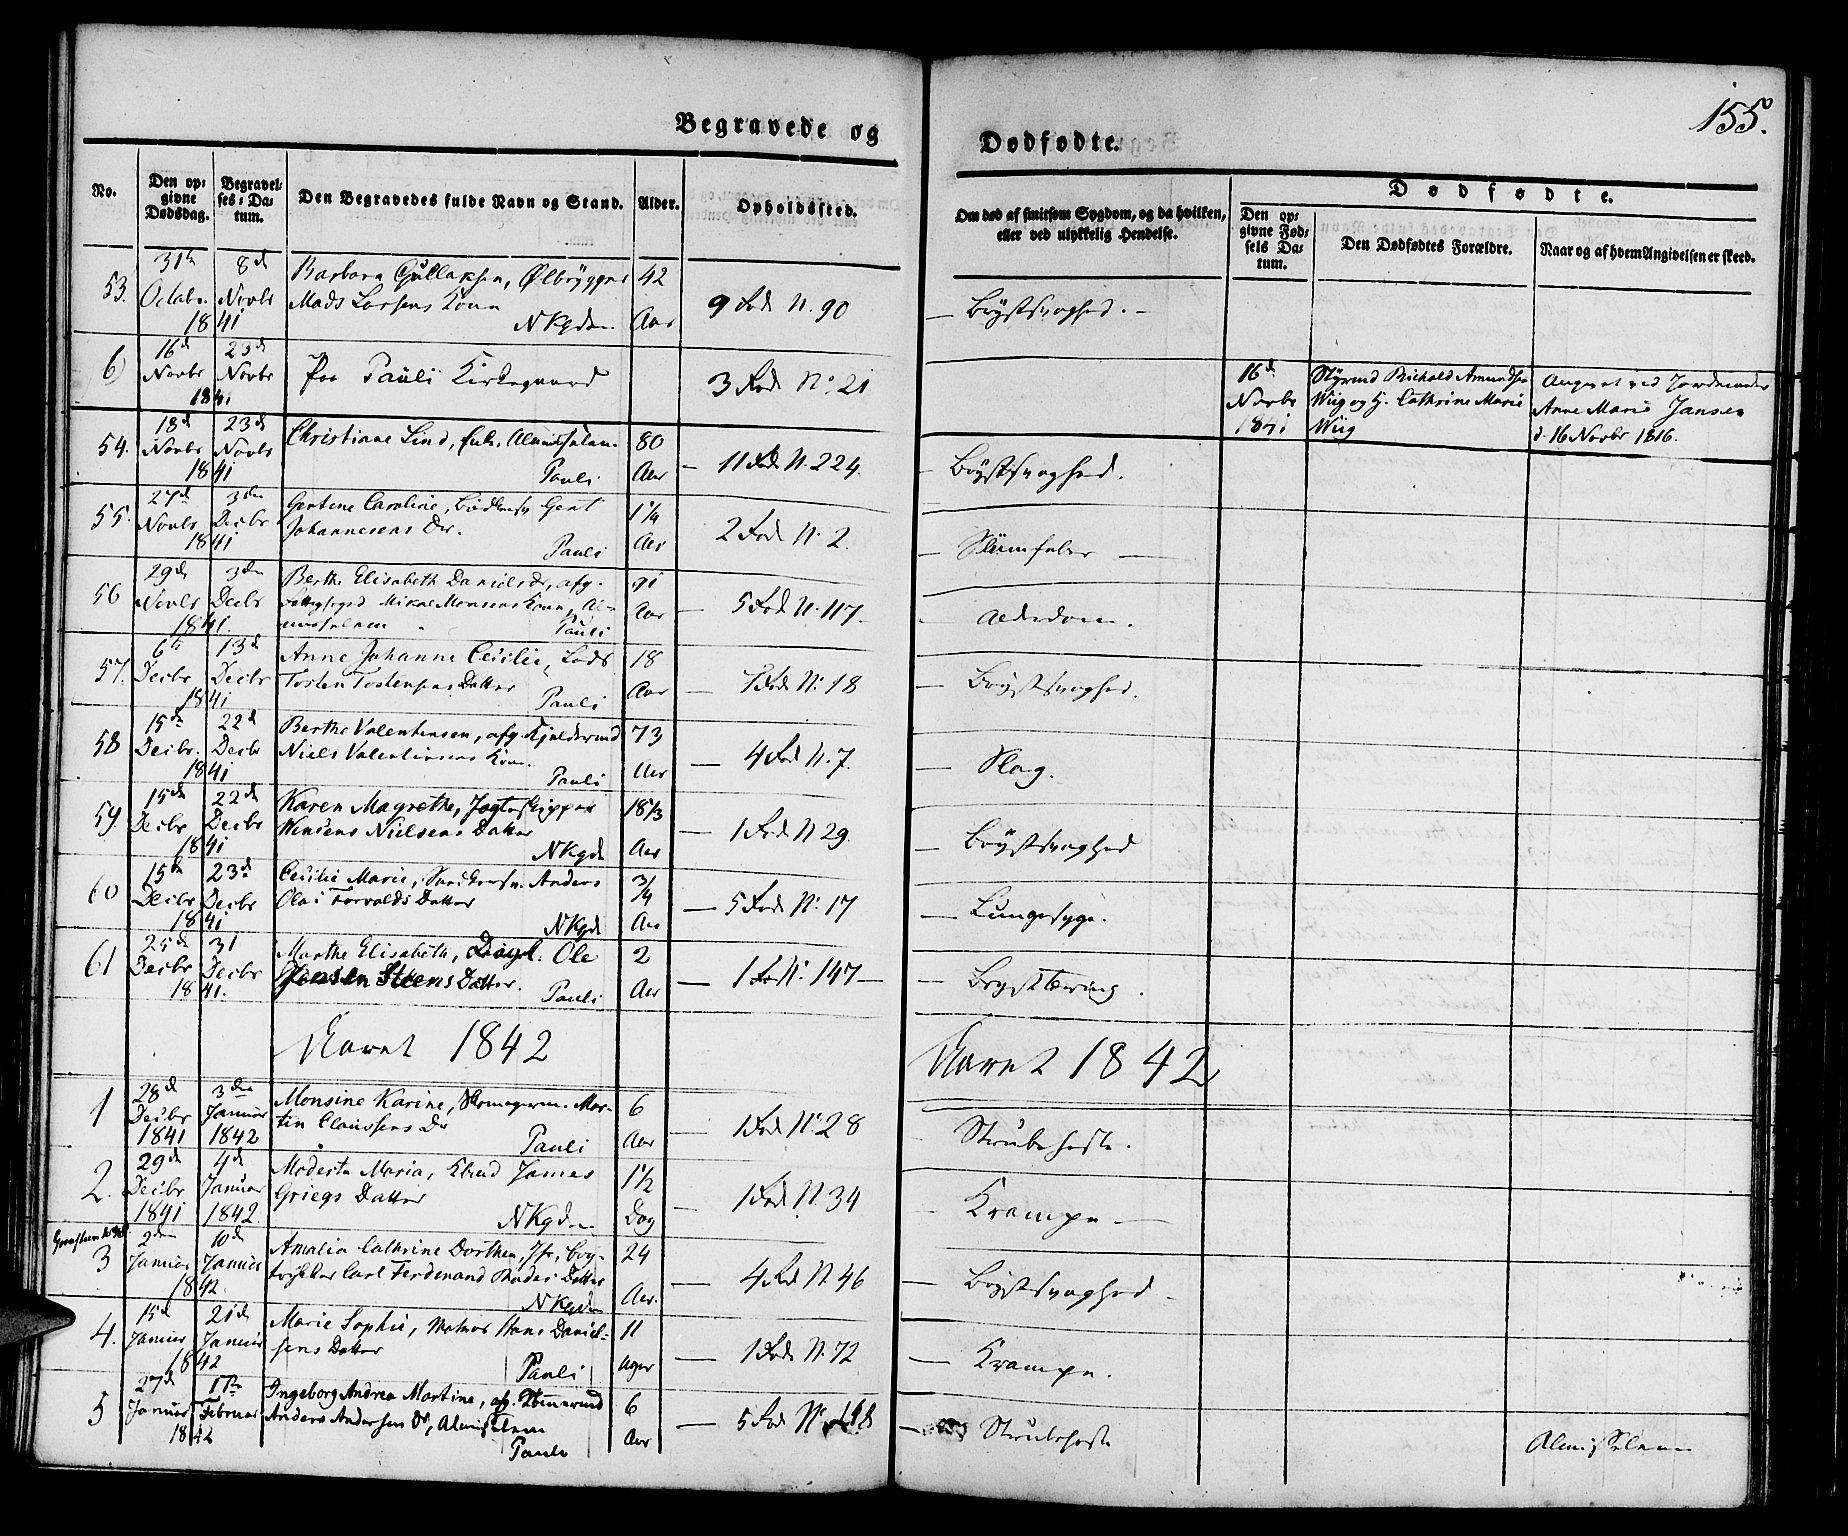 155.
Begravede og
Dødfødte.
No.
Den op-
givne
Dødsdag.
Begravel-
ses-Da-
tum.
Den Begravedes fulde Navn og Stand.
Alder.
Opholdssted.
Om død af smitsom Sygdom, og da hvilken,
eller ved ulykkelig Hendelse.
Dødfødte.
Den op-
givne Fød-
sels Da-
tum.
Den Dødfødtes Forældre.
Naar og af hvem Angivelsen er skeed.
53.
31te
Octobr.
8de
Novbr
1841
Barbara Gullaksen, Ølbrygger
Mads Larsens Kone
NKgden
42
Aar
9 Rode N. 90
Brystsvaghed.
6)
16de
Novbr
23de
Novbr
1841
Paa Pauli Kirkegaard
3 Rode No. 21
16de
Novbr
1841
Styrmd Richold Amundsen
Wiig og H. Cathrine Marie
Wiig
Angivet ved Jordemoder
Anne Marie Jansen
d. 16 Novbr 1816.
54.
18de
Novbr
23de
Novbr
1841
Christiane Lind, Enke, Almisselem
Pauli
80
Aar
11 Rode N. 224.
Brystsvaghed.
55.
27de
Novbr
3die
Decbr
1841
Gertine Caroline, Gert
Johannesens Dr.
Pauli
1 1/4
Aar
2 Rode N. 2.
Sliimfeber
56
29de
Novbr
3die
Decbr
1841
Berthe Elisabeth Danielsdr, afg.
Mikal Monsens Kone, Al-
misselem
Pauli
91
Aar
5 Rode N. 117.
Alderdom.
57.
6te
Decbr
13de
Decbr
1841
Anne Johanne Cecilie, Lods
Tosten Tostensens Datter
Pauli
18
Aar
1 Rode N. 18
Brystsvaghed.
58
15de
Decbr.
22de
Decbr
1841
Berthe Valentinsen, afg.
Niels Valentinsens Kone
Pauli
73
Aar
4 Rode N. 7.
Slag.
59.
15de
Decbr
22de
Decbr
1841
Karen Magrethe, Jagteskipper
Wensens Nielsens Datter
NKgd
18 1/3
Aar
1 Rode N 29.
Brystsvaghed
60
15de
Decbr
23de
Decbr
1841
Cecilie Marie, Anders
Olai Torvalds Datter
NKgd
3/4
Aar
5 Rode N. 17
Lungesyge.
61
25de
Decbr
31
Decbr
1841.
Marthe Elisabeth, Ole
Jensen Steens Datter.
Pauli
2
Aar
1 Ro N. 147
Brysttæring.
Aaret 1842
Aaret 1842
1
28de
Decbr
1841
3die
Januar
1842
Monsine Karine, Skomagerm. Mor-
ten Claussens Dr
Pauli
6
Aar
1 Rode N. 28
Strubehoste.
2.
29de
Decbr
1841
4de
Januar
1842.
Modesta Maria, James
Griegs Datter
NKgden
1 1/2
Dag
1 Rode N. 34
Krampe
3
2den
Januar
10de
Januar
1842.
Amalia Cathrine Dorthea, Jfr, Bog-
trykker Carl Ferdinand Rodes Datter
NKgden
24
Aar.
4 Rode N. 46
Brystsvaghed.
4.
15de
Januar
21de
Januar
1842
Marie Sophie, Matros Hans Daniel-
sens Datter
Pauli
11
Uger
1 Rode N. 72
Krampe.
5
27de
Januar
Februar
1842
Ingeborg Andrea Martine, af.
Anders Andersen Dr, Almisselem
Pauli
6
Aar
5 Rode No.
Strubehoste
Almisselem